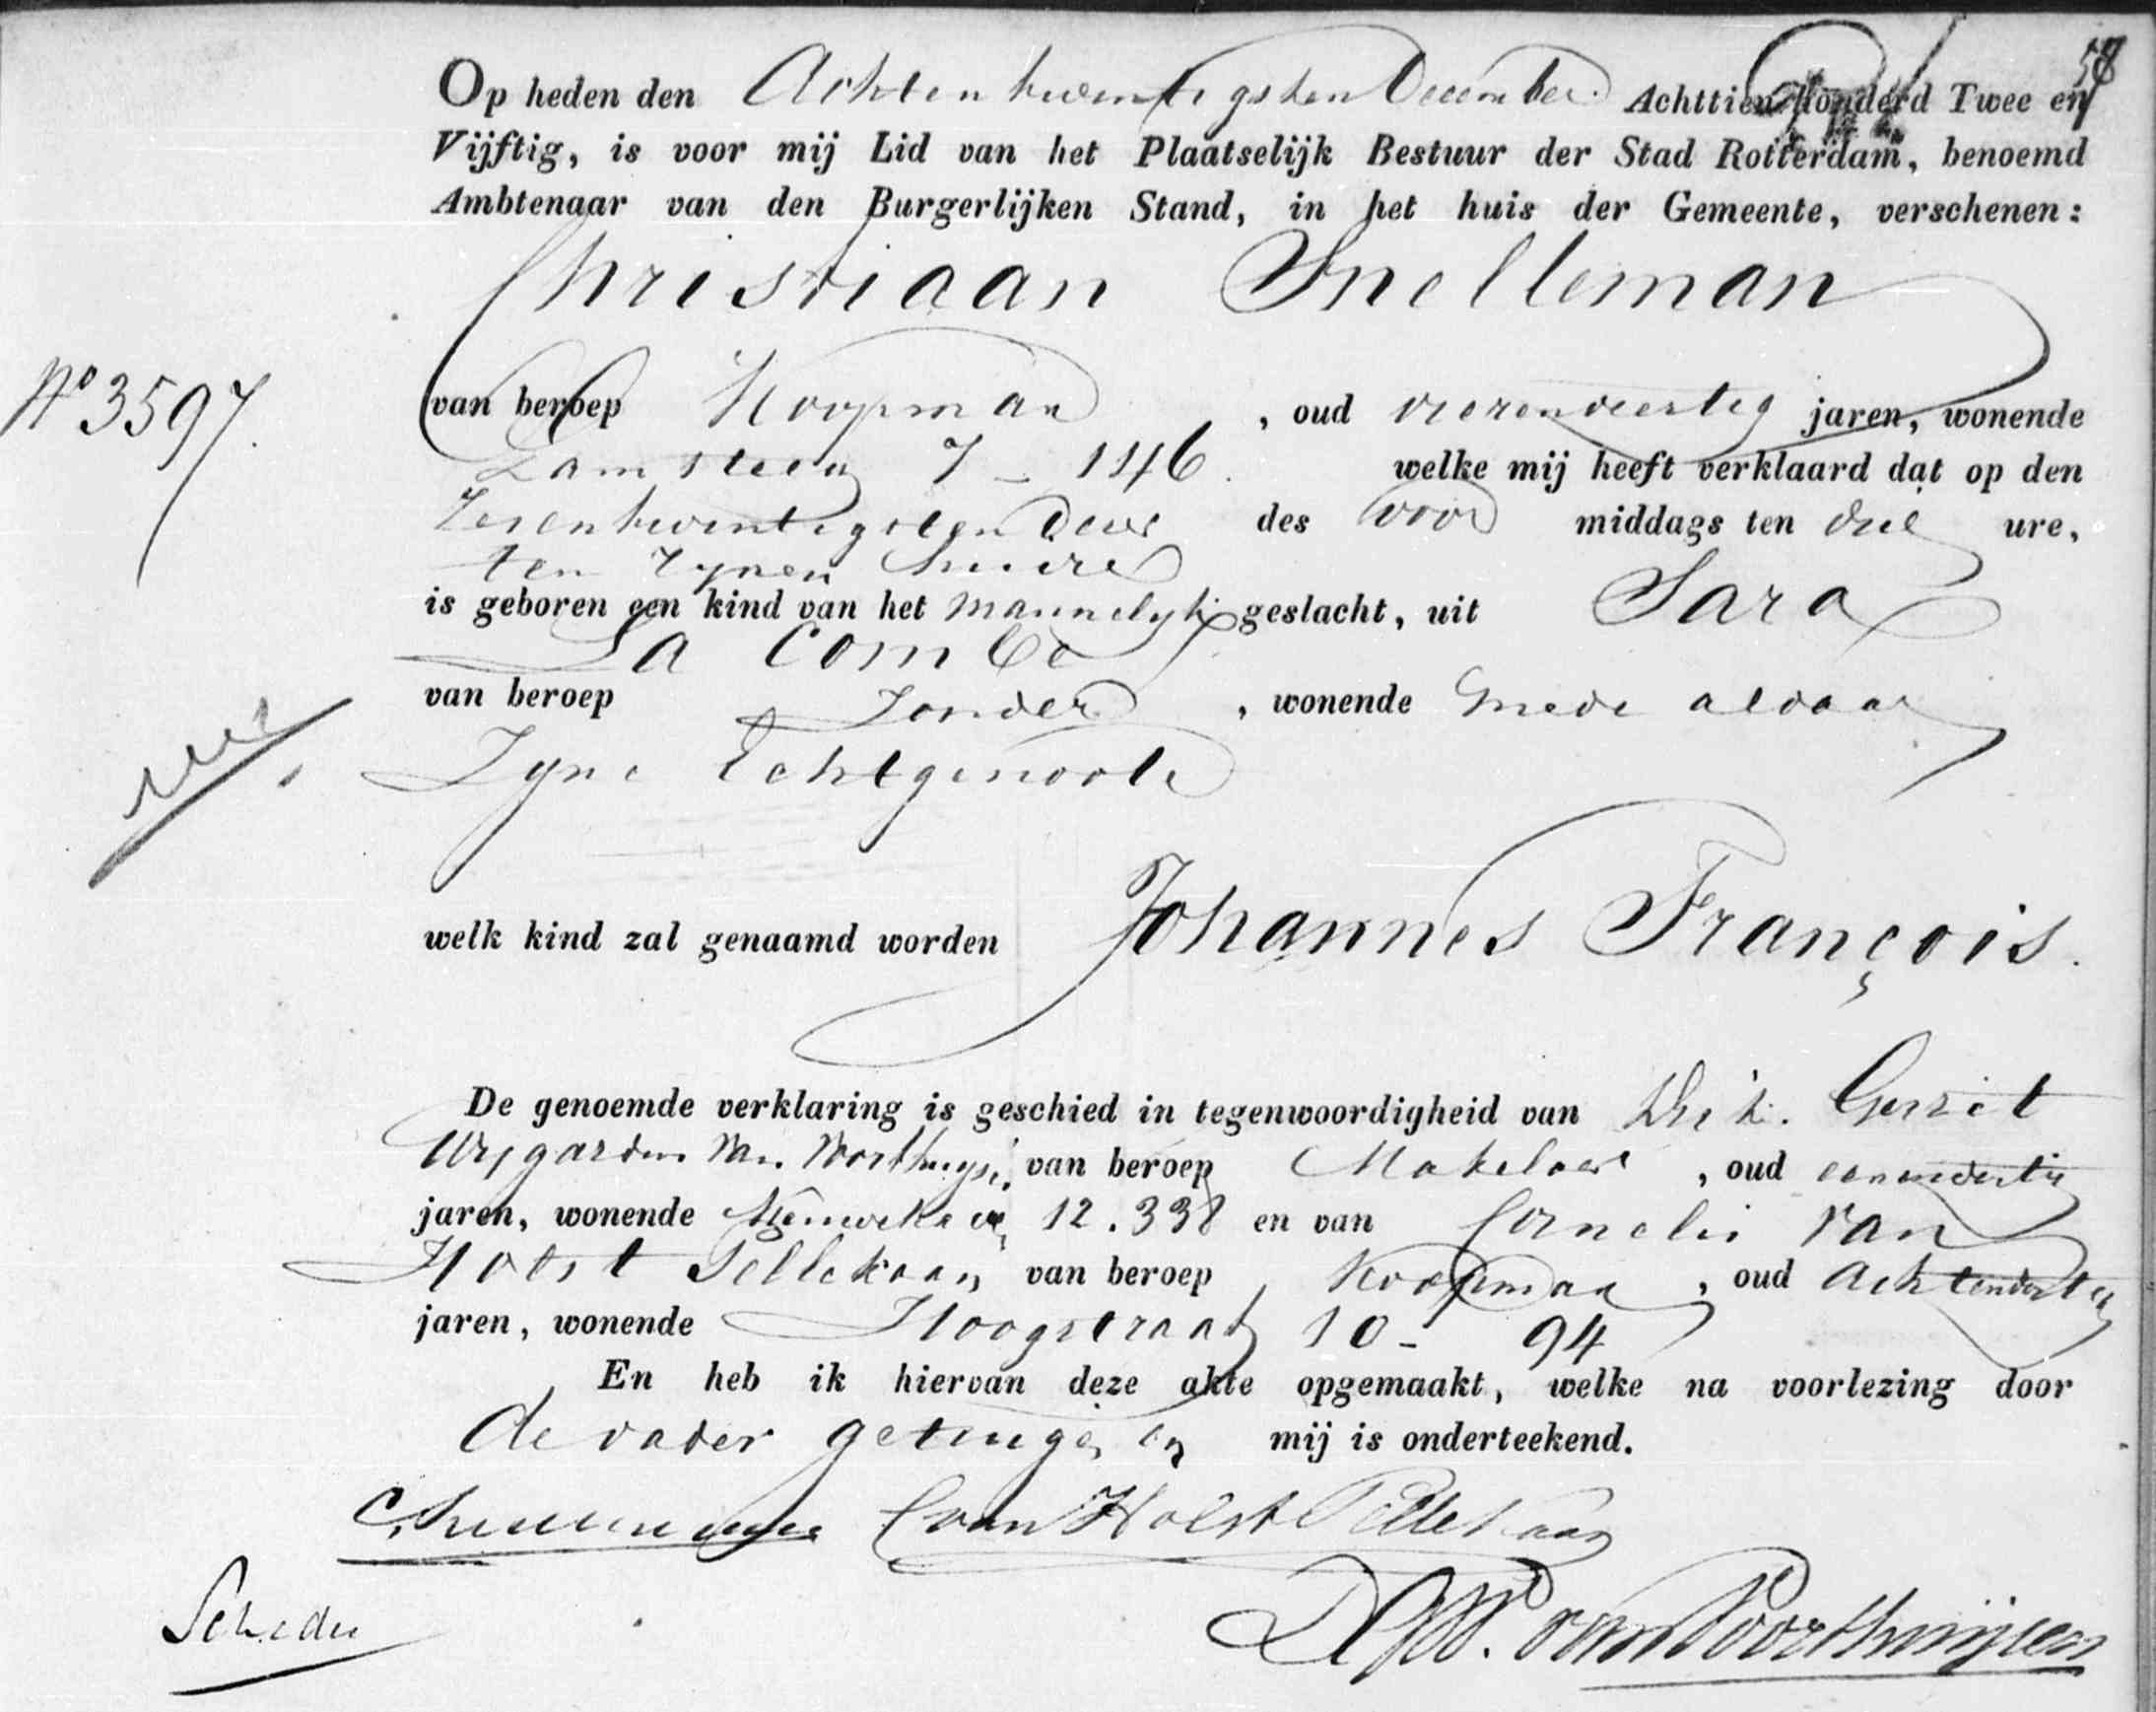 58
Op heden den Achtentwintigsten December Achttien Honderd Twee en
Vijftig, is voor mij Lid van het Plaatselijk Bestuur der Stad Rotterdam, benoemd
Ambtenaar van den Burgerlijken Stand, in het huis der Gemeente, verschenen:
Christiaan Snelleman
Nº 3597.
van beroep Koopman, oud vierenveertig jaren, wonende
Lamsteeg 7 - 146. welke mij heeft verklaard dat op den
Zesentwintigsten Decr des voor middags ten drie ure,
ten zynen huize
is geboren een kind van het mannelyk geslacht, uit Sara
La Combe
van beroep Zonder, wonende mede aldaar
Zyne Echtgenoote
welk kind zal genaamd worden Johannes François.
De genoemde verklaring is geschied in tegenwoordigheid van Dirk Gerrit
van beroep Makelaar, oud eenendertig
jaren, wonende 12.338 en van Cornelis van
Holst Pellekaan van beroep Koopman, oud Achtendertig
jaren, wonende Hoogstraat 10 - 94
En heb ik hiervan deze akte opgemaakt, welke na voorlezing door
de vader getuigen en mij is onderteekend.
C. van Holst Pellekaan
D G W. van Voorthuijsen